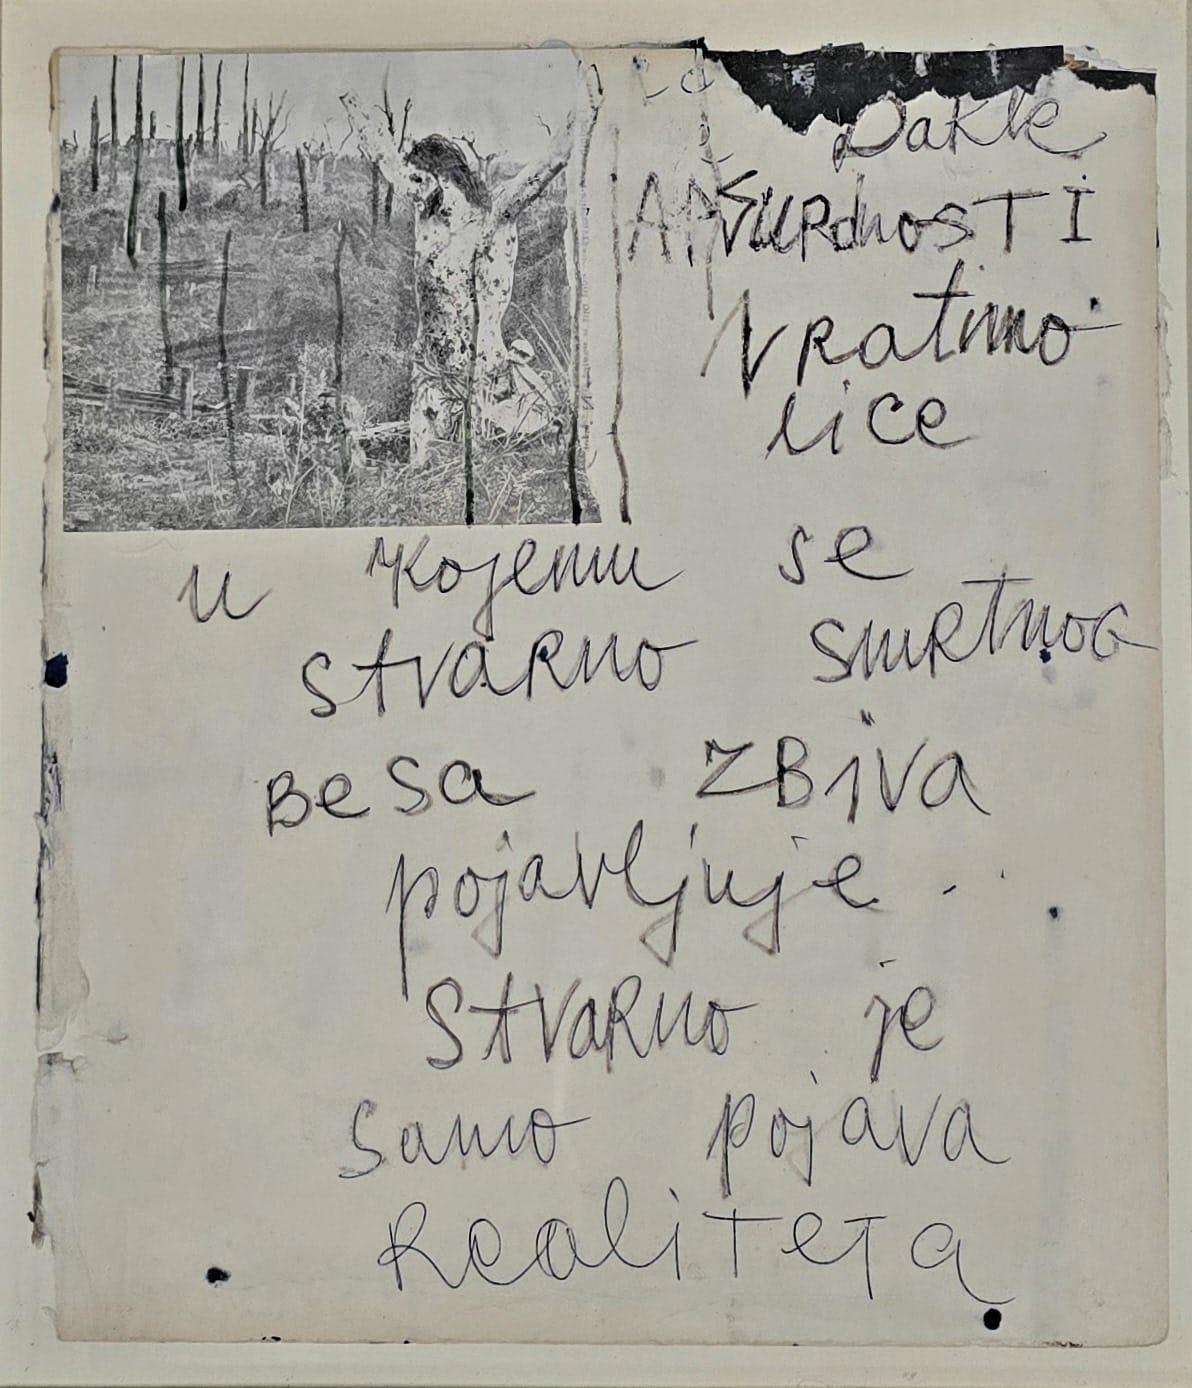 Dakle
APSURdnosTI
vratimo
lice
u kojemu se
stvaRno smRtnog
Besa ZBIVA
pojavljuje..
StvaRno je
samo pojava
RealiTeTa